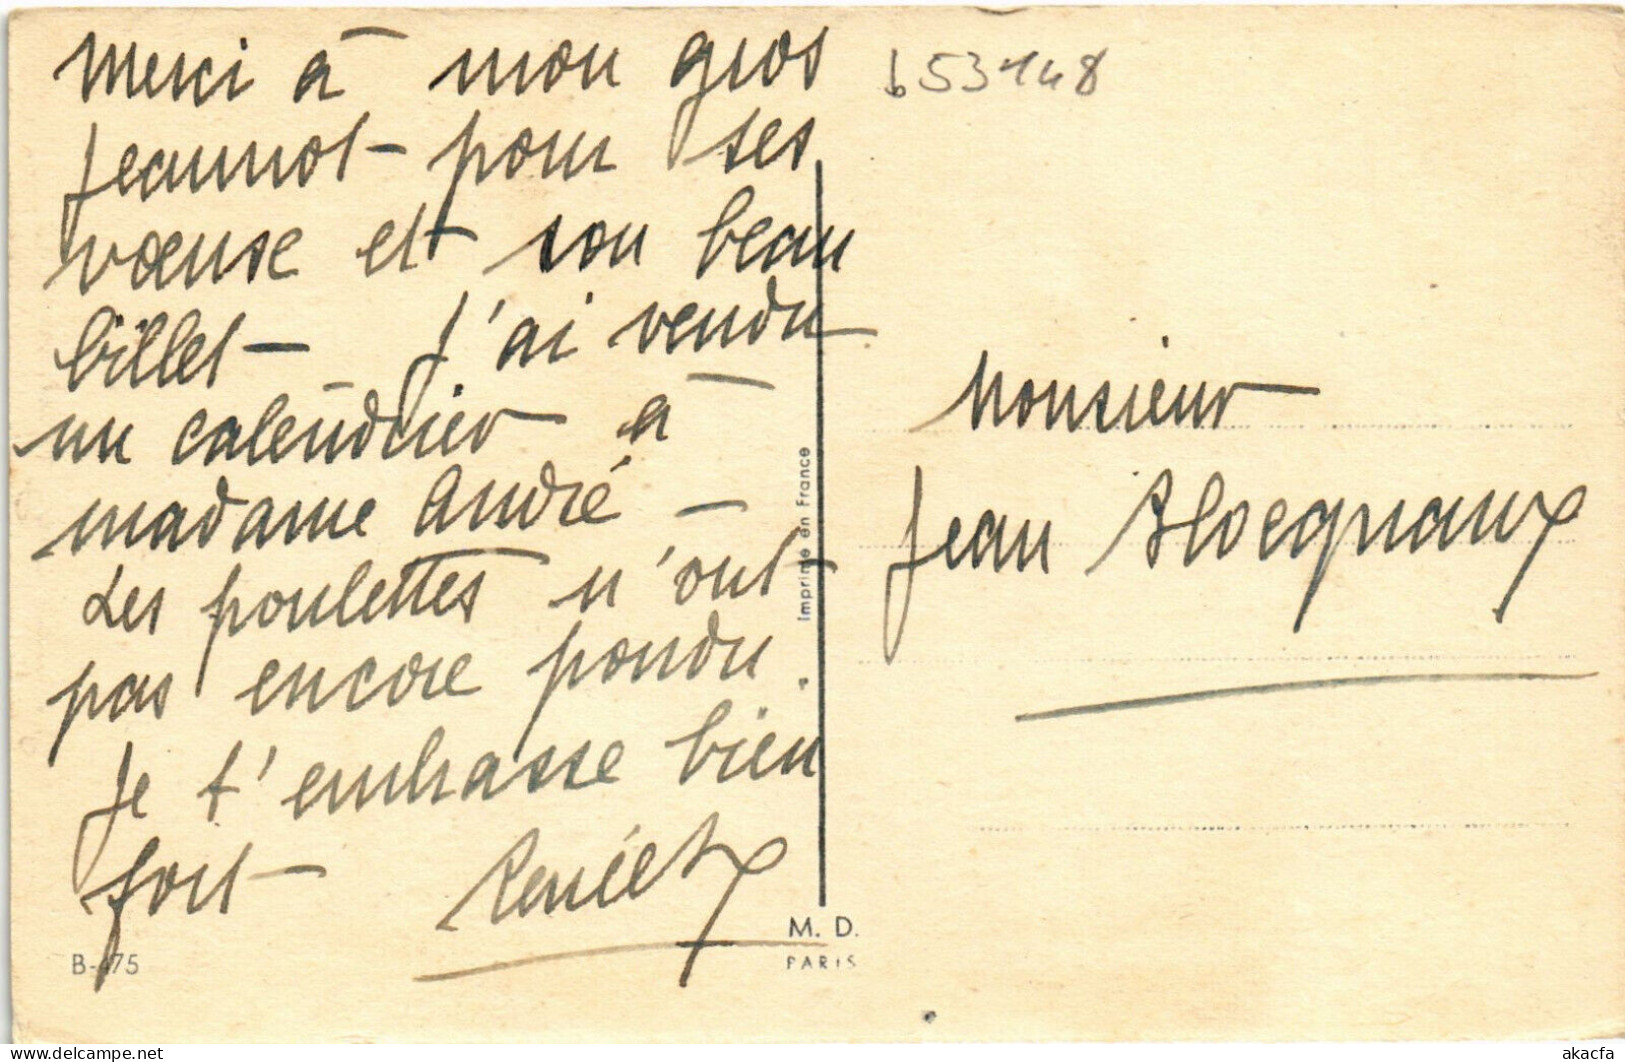 Merci à mon gros
Jeannot - pour ses
vœuse et son beau
billet - J'ai vendu
un calendrier à
madame André -
Les poulettes n'ont
pas encore pondu.
Je t'embrasse bien
fort -
B-475
M. D.
PARIS
Imprimé en France
b53148
Monsieur
Jean Blocquaux
akacfa